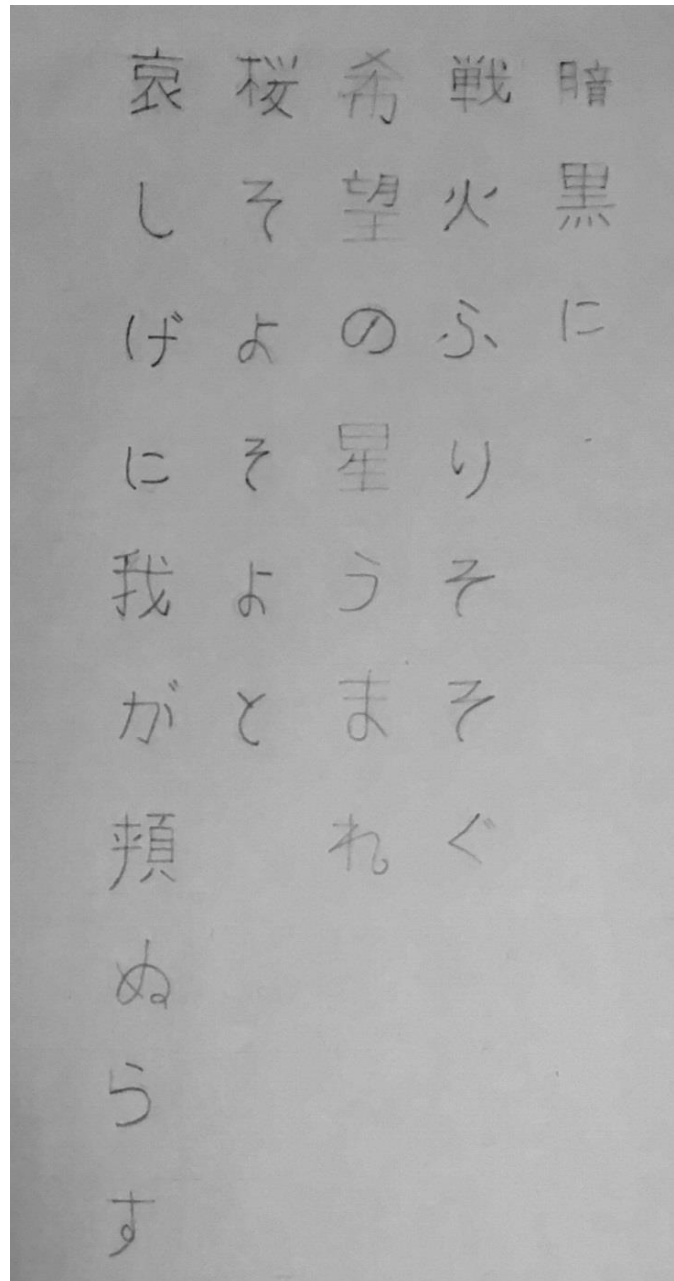 暗黒に
戦火ふりそそぐ
希望の星うまれ
桜そよそよと
哀しげに我が頬ぬらす